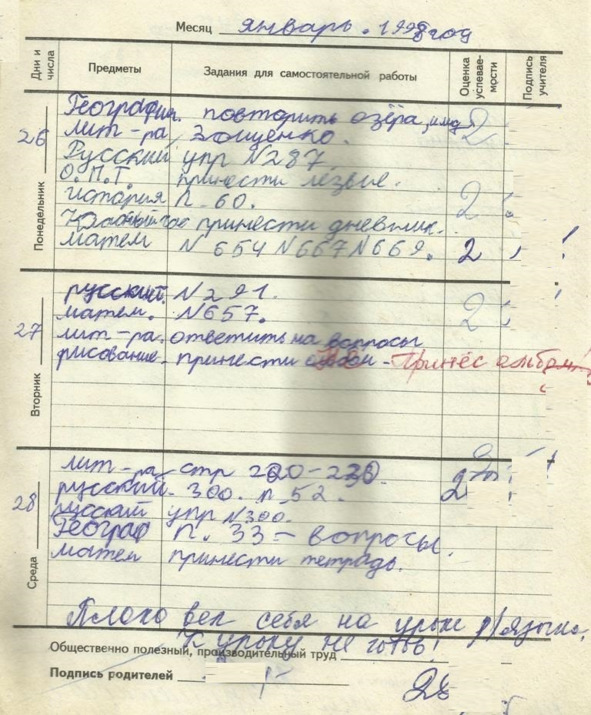 Месяц январь. 1998 год
Дни и числа Предметы Задания для самостоятельной работы Оценка успеваемости Подпись учителя
Понедельник 26
География. повторить озёра, 2
лит-ра Зощенко.
Русский упр N287
О.П.Т. принести лезвие.
история п. 60. 2
Классный час принести дневник.
матем N 654 N667 N669. 2
Вторник 27
русский. N291. 2
матем. N657.
лит-ра. ответить на вопросы
рисование. принести альбом - Принёс альбом
Среда 28
лит-ра стр 220-230. 2
русский. 300. п 52. 2
русский упр N300.
Географ п. 33 - вопросы.
матем принести тетрадь.
Плохо вел себя на уроке р/языка,
К уроку не готов!
Общественно полезный, производительный труд
Подпись родителей 28